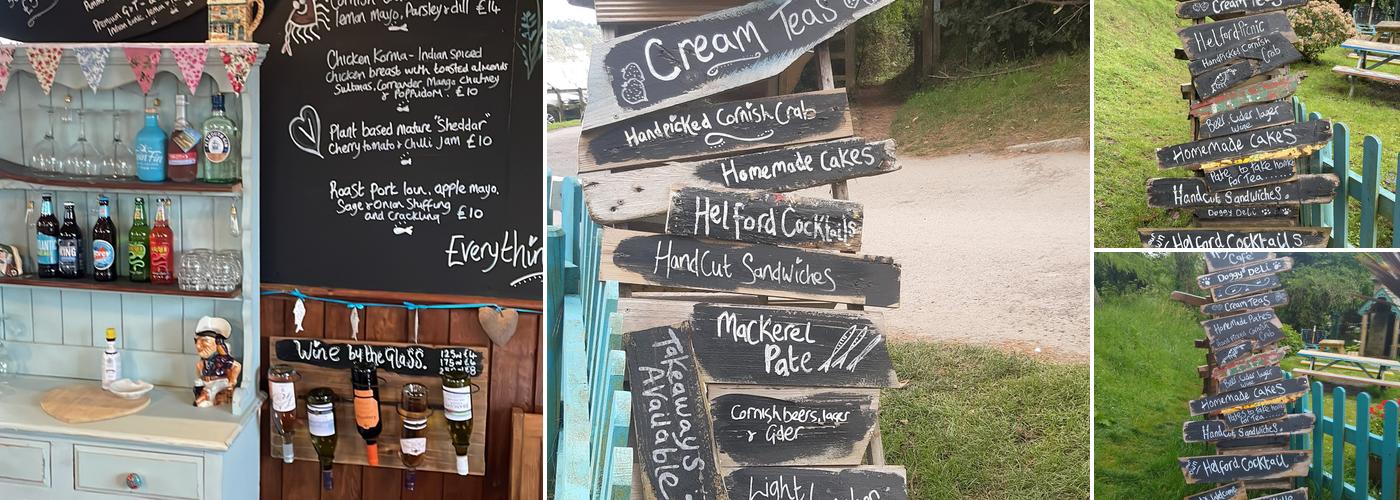 Premium G&T
lemon Mayo, Parsley & dill £14
Chicken Korma - Indian spiced
chicken breast with toasted almonds
Sultanas, Corriander, Mango chutney
& Poppudom. £10
Plant based mature "Sheddar"
cherry tomato & chilli Jam £10
Roast Port loin, apple mayo,
Sage & Onion Stuffung
and crackling £10
Everythin
Wine by the Glass.
125ml £4
175ml £6
KING
Cream Teas
Handpicked Cornish Crab
Homemade Cakes
Helford Cocktails
HandCut Sandwiches
Mackerel
Pate
Takeaways
Available
Cornish beers, lager
& Cider
Light
Cream Teas
Helford Picnic
Handpicked Cornish
Crab
Beer Cider lager
Wine
Homemade Cakes
Pate to take home
for Tea......
HandCut Sandwiches.
Doggy Deli
Helford Cocktails
Cafe
Doggy Deli
Cream Teas
Homemade Pates
Hand picked Cornish
Crab
Beer Cider lager
Wine
Homemade Cakes
Pates to take home
for Tea......
HandCut Sandwiches.
Helford Cocktail